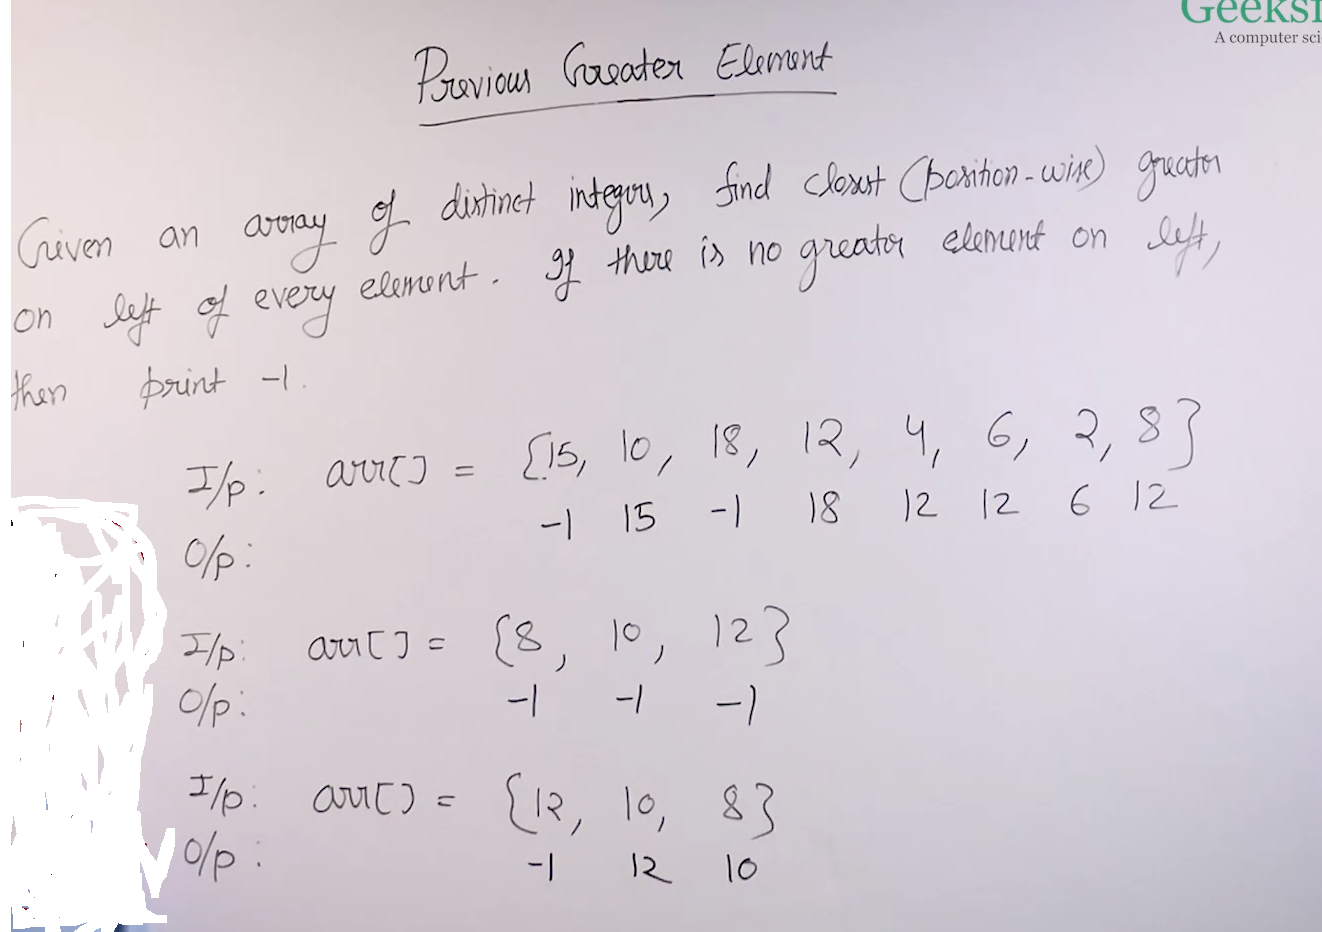 Geeksf
A computer sci
Previous Greater Element
Given an array of distinct integers, find closest (position-wise) greater
on left of every element. If there is no greater element on left,
then print -1.
I/p: arr[] = {15, 10, 18, 12, 4, 6, 2, 8}
-1 15 -1 18 12 12 6 12
O/p:
I/p: arr[] = {8, 10, 12}
O/p: -1 -1 -1
I/p: arr[] = {12, 10, 8}
O/p: -1 12 10